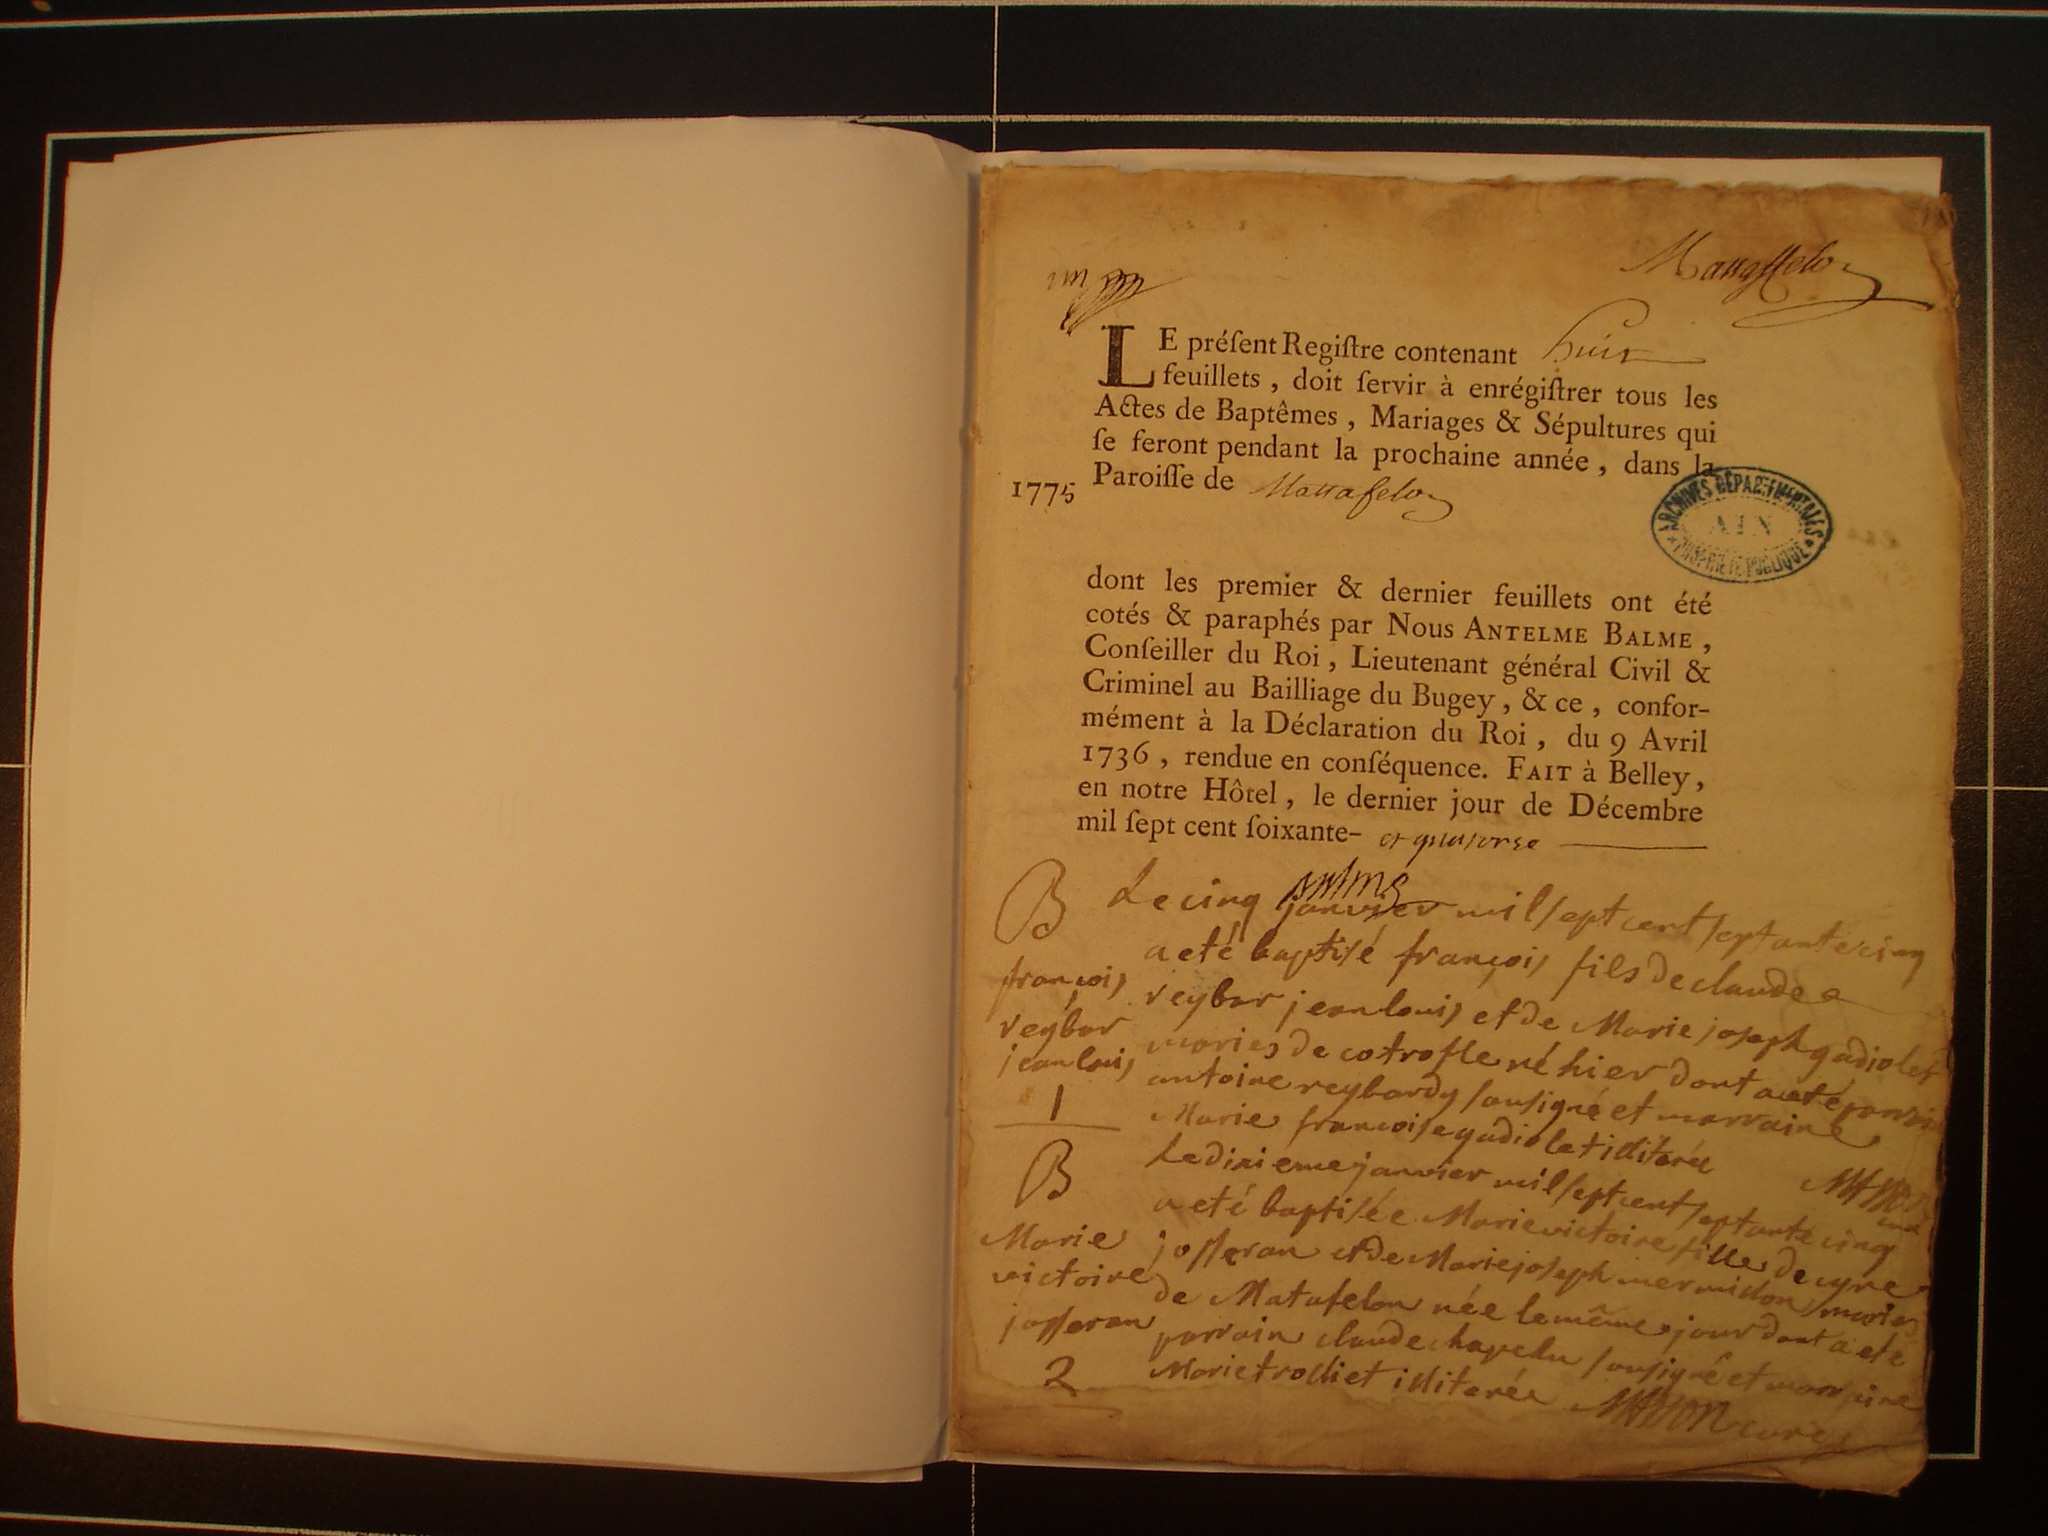 Mattaffelon
LE préſent Regiſtre contenant huit
feuillets, doit ſervir à enrégiſtrer tous les
Actes de Baptêmes, Mariages & Sépultures qui
ſe feront pendant la prochaine année, dans la
1775 Paroiſſe de Mattafelon
ARCHIVES DÉPARTEMENTALES
AIN
PROPRIÉTÉ PUBLIQUE
dont les premier & dernier feuillets ont été
cotés & paraphés par Nous ANTELME BALME,
Conſeiller du Roi, Lieutenant général Civil &
Criminel au Bailliage du Bugey, & ce, confor-
mément à la Déclaration du Roi, du 9 Avril
1736, rendue en conſéquence. FAIT à Belley,
en notre Hôtel, le dernier jour de Décembre
mil ſept cent ſoixante- et quatorse
B
françois
reybar
jeanlouis
1
Le cinq janvier mil sept cent septante cinq
a eté baptisé françois fils de claude
reybar jeanlouis et de Marie joseph gadiolet
maries de cotrosse né hier dont a eté parrin
antoine reybardy sousigné et marraine
Marie francoise gadiolet illiterée
B
Marie
victoire
josseran
2
Le dixieme janvier mil sept cent septante cinq
a eté baptisée Marie victoire fille de cyre
josseran et de Marie joseph mermidon maries
de Matafelon née le même jour dont a eté
parrain claude chapelu sousigné et marraine
Marie trolliet illiterée MASSON curé